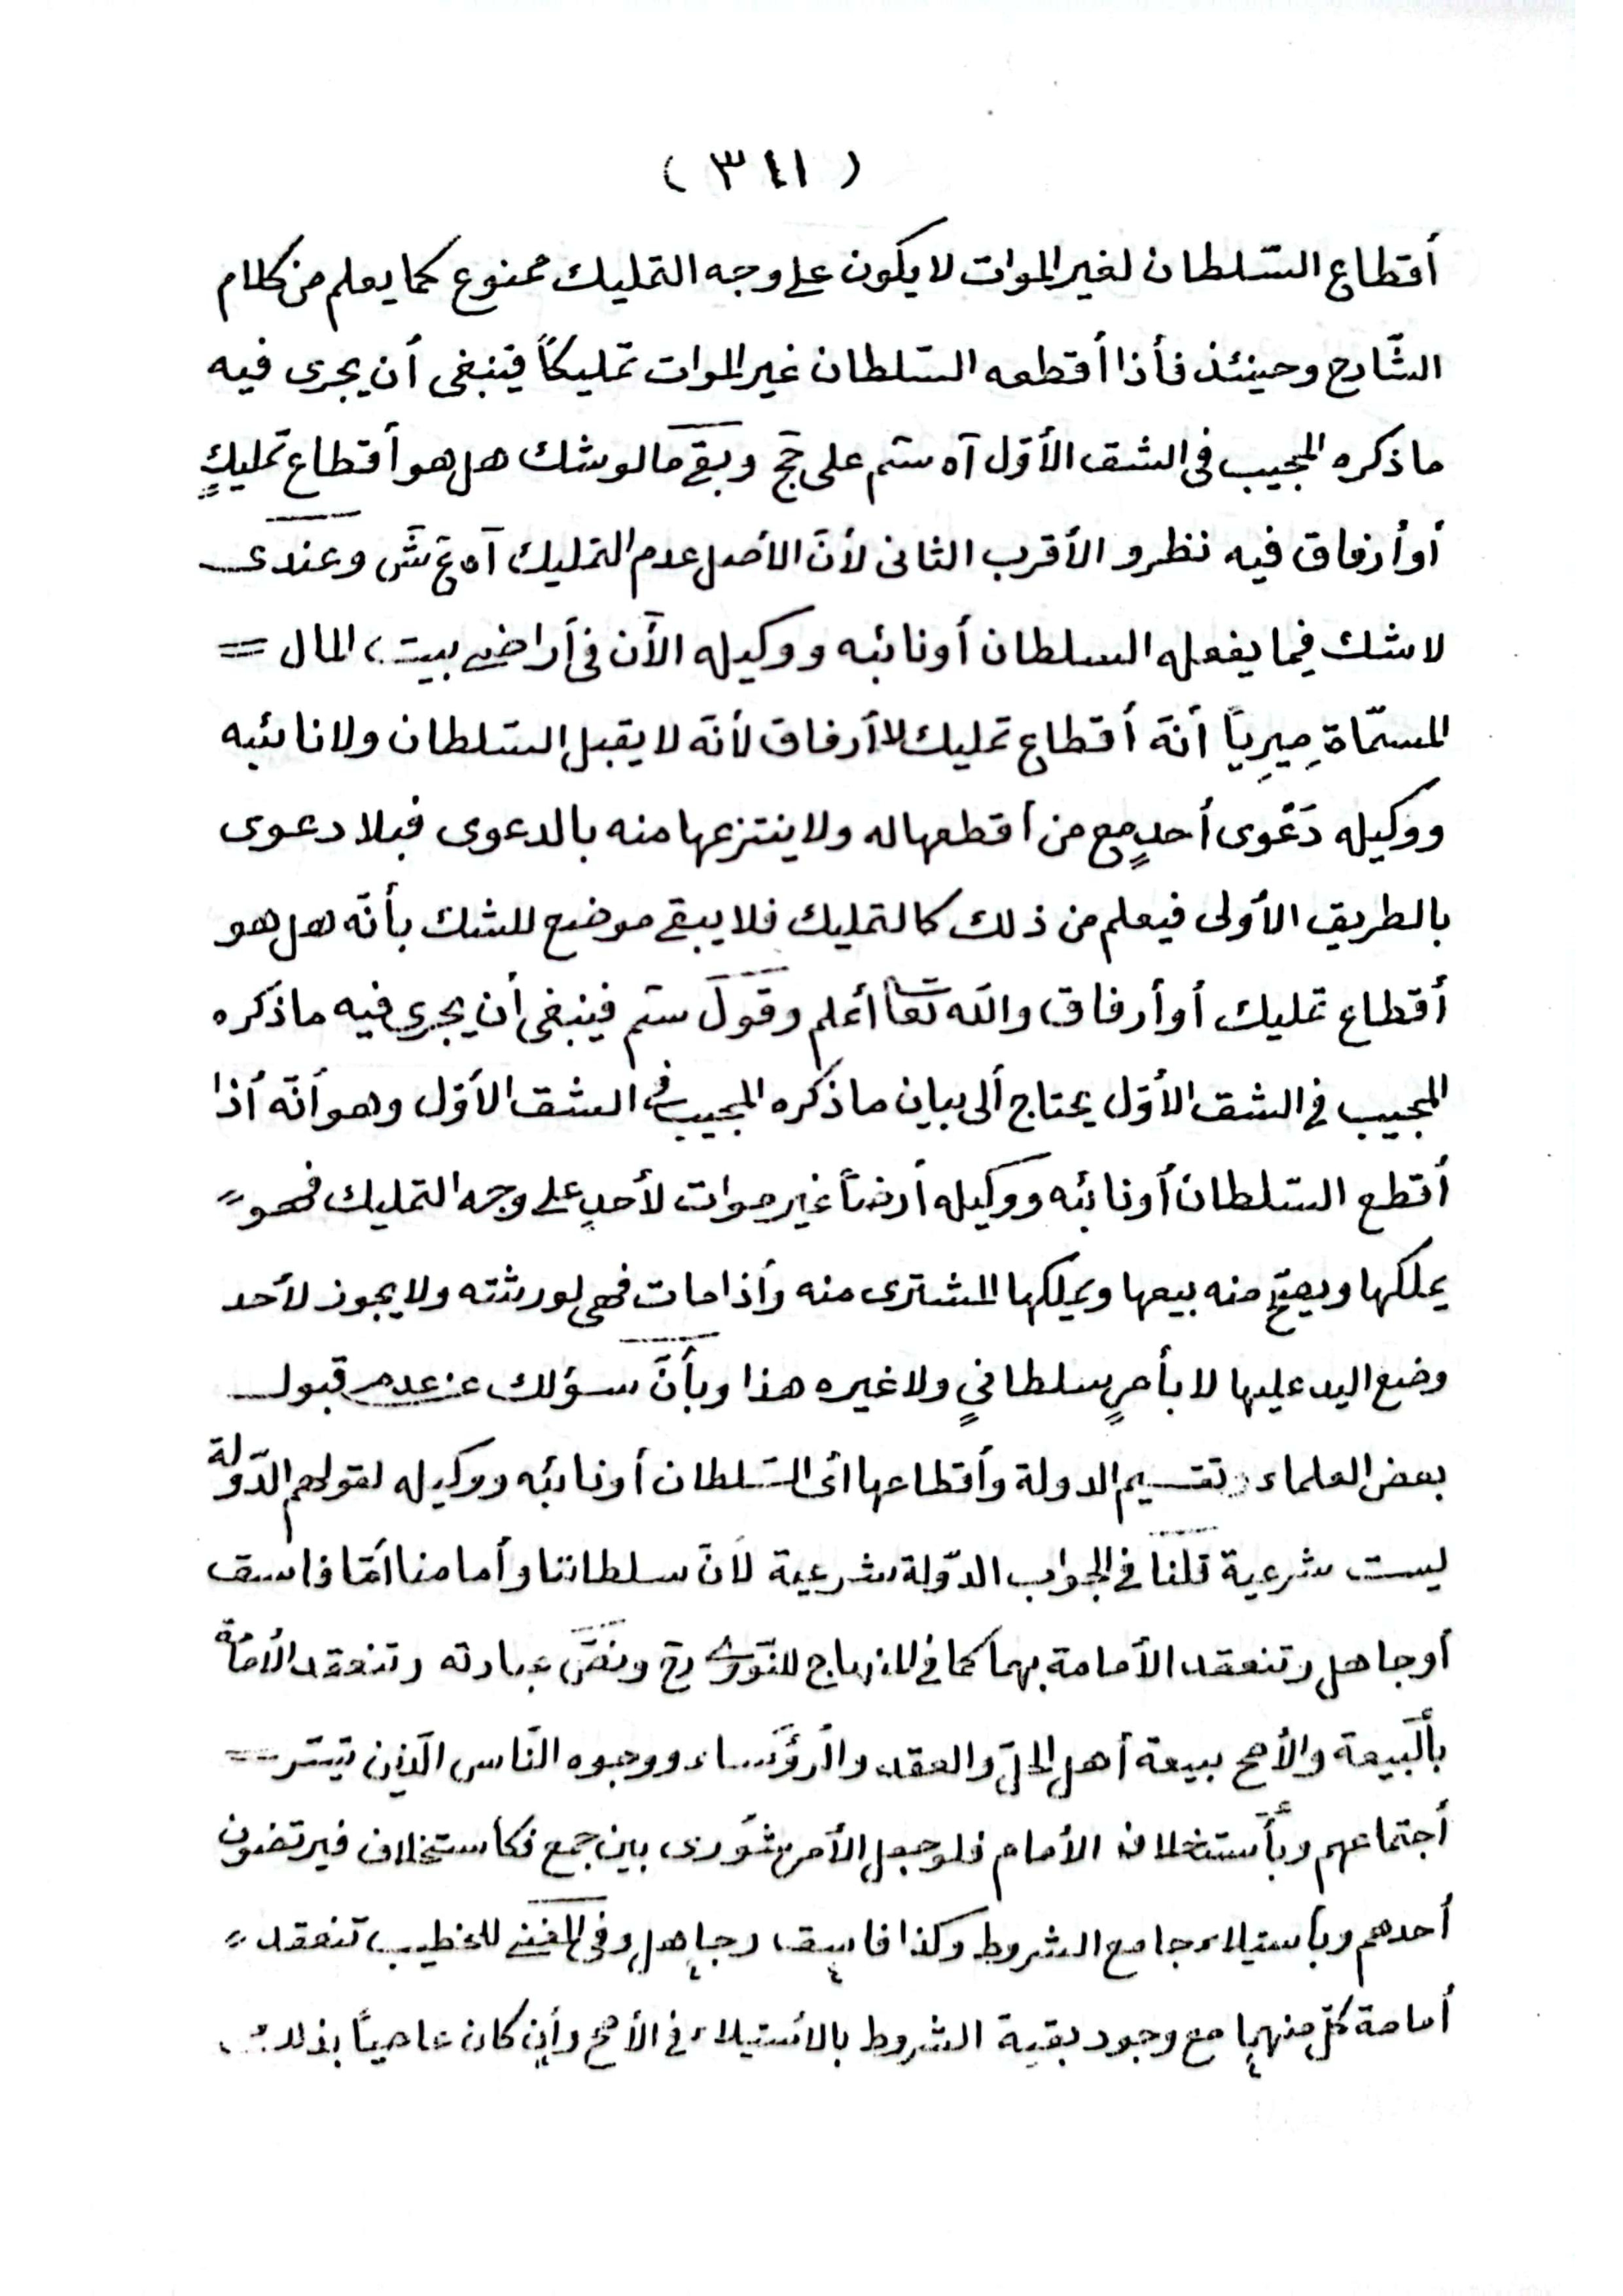 ( ٣٤١ )
أقطاع السّلطان لغير الموات لا يكون على وجه التمليك ممنوع كما يعلم من كلام
الشّارح وحينئذ فأذا أقطعه السّلطان غير الموات تمليكاً فينبغى أن يجرى فيه
ما ذكره المجيب فى الشق الأوّل آه سم على حج وبقى مالو شك هل هو أقطاع تمليكٍ
أو أرفاق فيه نظر و الأقرب الثانى لأنّ الأصل عدم التمليك آه ع ش وعندى
لا شك فيما يفعله السلطان أو نائبه ووكيله الآن فى أراضى بيت المال =
المسمّاة مِيرِياً أنّه أقطاع تمليك لا أرفاق لأنّه لا يقبل السّلطان ولا نائبه
ووكيله دَعْوى أحدٍ مع من أقطعها له ولا ينتزعها منه بالدعوى فبلا دعوى
بالطريق الأولى فيعلم من ذلك كالتمليك فلا يبقى موضع للشك بأنّه هل هو
أقطاع تمليك أو أرفاق والله تعا أعلم وقول سم فينبغى أن يجرى فيه ما ذكره
المجيب فى الشق الأوّل يحتاج ألى بيان ما ذكره المجيب فى الشق الأوّل وهو أنّه أذا
أقطع السّلطان أو نائبه ووكيله أرضاً غير موات لأحدٍ على وجه التمليك فهو ״
يملكها ويصحّ منه بيعها ويملكها المشترى منه وأذا مات فهى لورثته ولا يجوز لأحد
وضع اليد عليها لا بأمرٍ سلطانيٍ ولا غيره هذا وبأنّ سؤلك عن عدم قبول
بعض العلماء تقسيم الدولة وأقطاعها أى السّلطان أو نائبه ووكيله لقولهم الدّولة
ليست شرعية قلنا فى الجواب الدّولة شرعية لأنّ سلطاننا وأمامنا أمّا فاسق
أو جاهل وتنعقد الأمامة بهما كما فى المنهاج للنّووى رح ونصّ عبارته وتنعقد الأمامة
بألبيعة والأصح بيعة أهل الحلّ والعقد والرّؤساء ووجوه النّاس الّذين تيسّر =
أجتماعهم وبأستخلاف الأمام فلو جعل الأمر شُورى بين جمع فكاستخلاف فيرتضون
أحدهم وبأستيلاء جامع الشروط وكذا فاسق وجاهل وفى المغنى للخطيب تنعقد ״
أمامة كلّ منهما مع وجود بقية الشروط بالأستيلاء فى الأصح وأن كان عاصياً بذلك